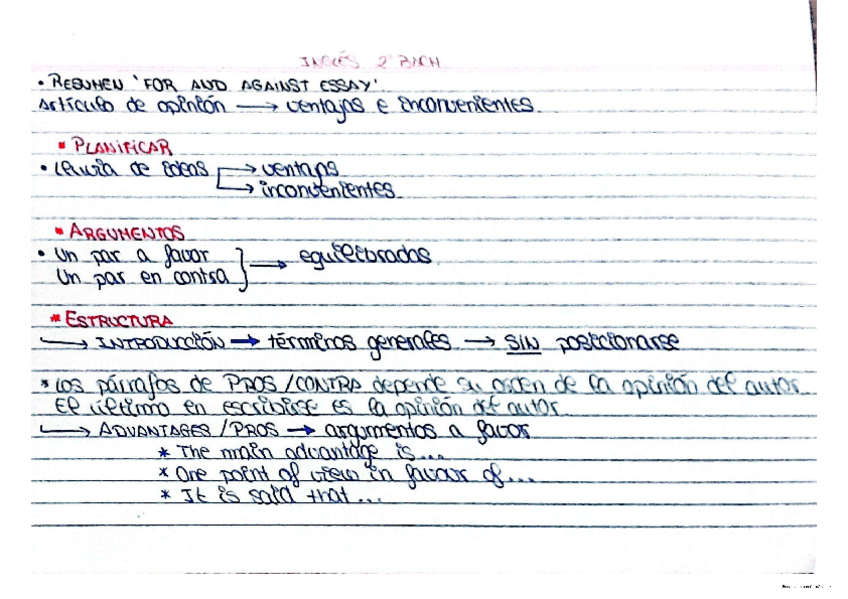 INGLÉS 2º BACH
• RESUMEN 'FOR AND AGAINST ESSAY'.
Artículo de opinión → ventajas e inconvenientes.
▪ PLANIFICAR
• Lluvia de ideas → ventajas
→ inconvenientes
▪ ARGUMENTOS
• Un par a favor
Un par en contra } → equilibrados.
* ESTRUCTURA
→ INTRODUCCIÓN → términos generales → SIN posicionarse
* Los párrafos de PROS / CONTRA depende su orden de la opinión del autor.
El último en escribirse es la opinión del autor.
→ ADVANTAGES / PROS → argumentos a favor
* The main advantage is...
* One point of view in favour of...
* It is said that...